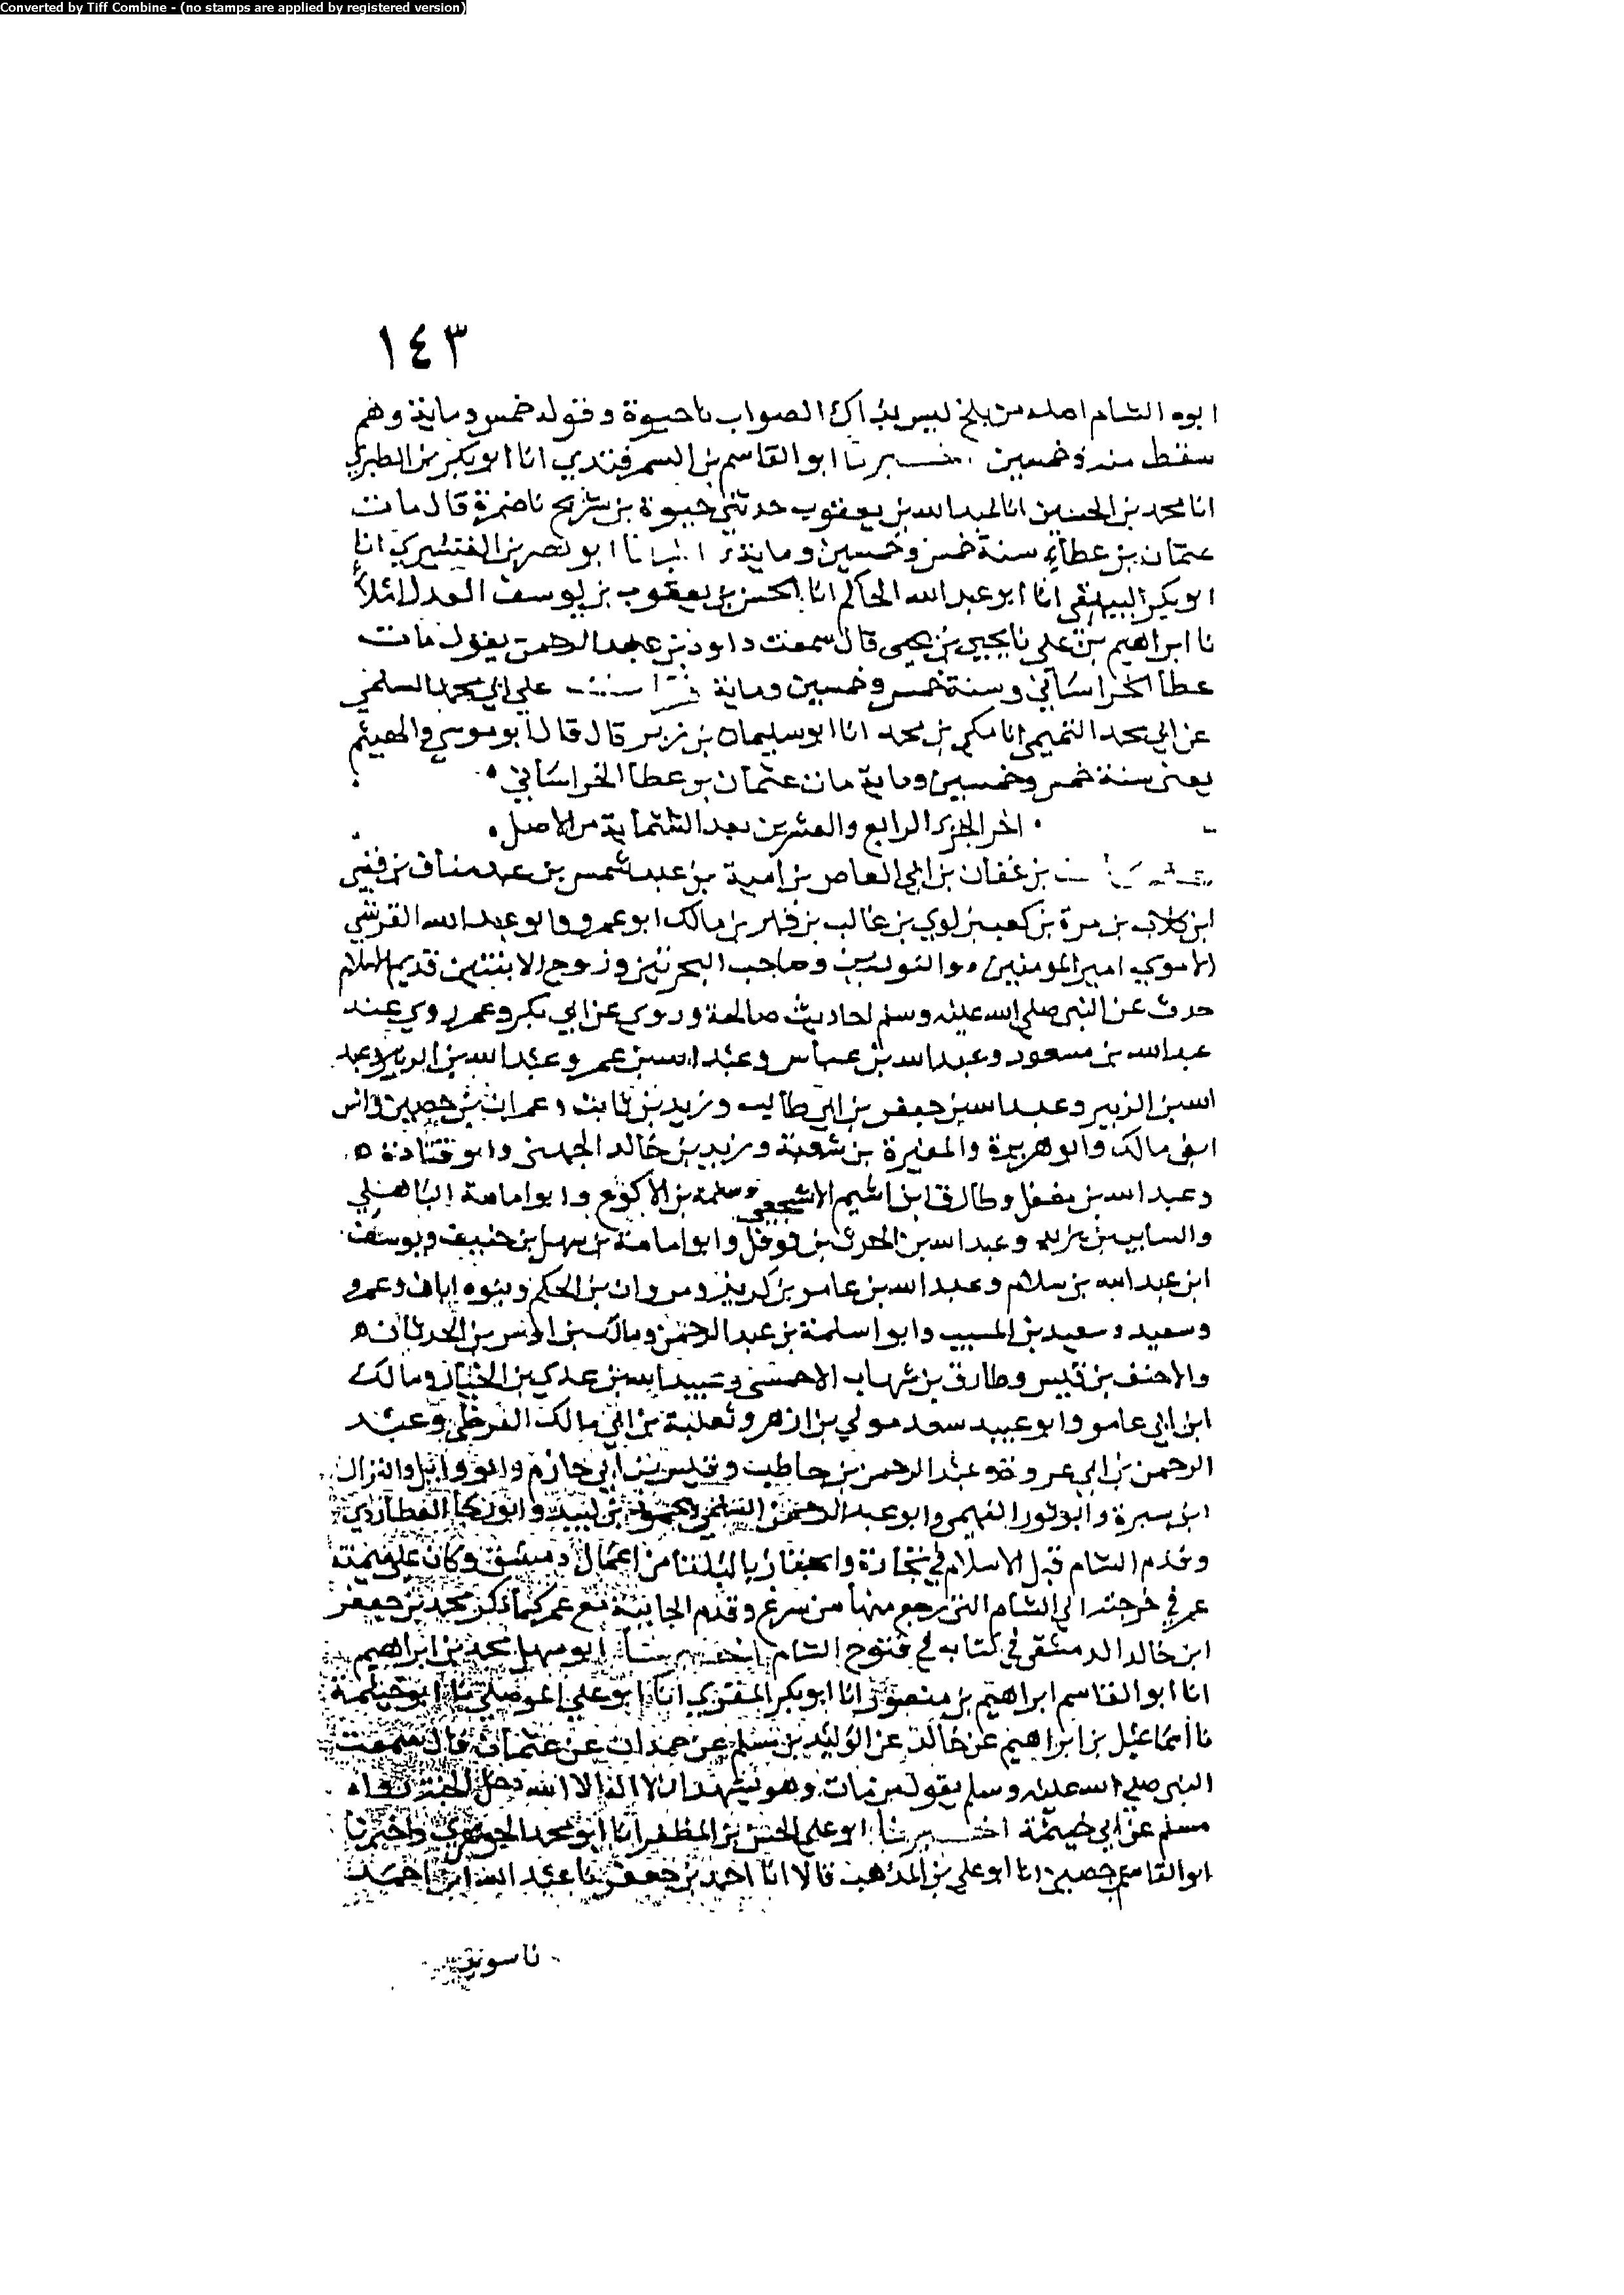 Converted by Tiff Combine - (no stamps are applied by registered version)
١٤٣
ابوه الشام اصله من بلخ ليس بذاك الصواب نا حيوة وقوله خمس وماية وهم
سقط منه وخمسين اخبرنا ابو القاسم بن السمرقندي انا ابو بكر بن الطبري
انا محمد بن الحسين انا عبد الله بن يعقوب حدثني حيوة بن شريح نا ضمرة قال مات
عثمان بن عطا سنة خمس وخمسين وماية انا ابو نصر بن القشيري انا
ابو بكر البيهقي انا ابو عبد الله الحاكم انا الحسن بن يعقوب بن يوسف العدل املا
نا ابراهيم بن علي نا يحيى بن يحيى قال سمعت داود بن عبد الرحمن يقول مات
عطا الخراساني وسنة خمس وخمسين وماية قرات على ابي محمد السلمي
عن ابي محمد التميمي انا مكي بن محمد انا ابو سليمان بن زبر قال قال ابو موسى والهيثم
يعني سنة خمس وخمسين وماية مات عثمان بن عطا الخراساني
اخر الجزء الرابع والعشرين بعد الثلثماية من الاصل
بن عفان بن ابي العاص بن امية بن عبد شمس بن عبد مناف بن قصي
ابن كلاب بن مرة بن كعب بن لوي بن غالب بن فهر بن مالك ابو عمرو وابو عبد الله القرشي
الاموي امير المومنين وصاحب البحرتين وزوج الابنتين قديم
حدث عن النبي صلى الله عليه وسلم احاديث صالحة وروى عن ابي بكر وعمر روى عنه
عبد الله بن مسعود وعبد الله بن عباس وعبد الله بن عمر وعبد الله بن الزبير وعبد
الله بن الزبير وعبد الله بن جعفر بن ابي طالب وزيد بن ثابت وعمران بن حصين وانس
ابن مالك وابو هريرة والمغيرة بن شعبة وزيد بن خالد الجهني وابو قتادة
وعبد الله بن مغفل وطارق ابن اشيم الاشجعي وسلمة بن الاكوع وابو امامة الباهلي
والسايب بن يزيد وعبد الله بن الحرث بن نوفل وابو امامة بن سهل بن حنيف ويوسف
ابن عبد الله بن سلام وعبد الله بن عامر بن كريز ومروان بن الحكم وبنوه ابان وعمرو
وسعيد وسعيد بن المسيب وابو سلمة بن عبد الرحمن ومالك بن اوس بن الحدثان
والاحنف بن قيس وطارق بن شهاب الاحمسي وعبيد الله بن عدي بن الخيار ومالك
ابن ابي عامر وابو عبيد سعد مولى بن ازهر وثعلبة بن ابي مالك القرظي وعبد
الرحمن بن ابي عمرو عبد الرحمن بن حاطب وقيس بن ابي حازم وابو وايل والنزال
ابن سبرة وابو ثور الفهمي وابو عبد الرحمن السلمي ومحمود بن لبيد وابو رجا العطاردي
وقدم الشام قبل الاسلام في تجارة واجتاز بالبلقا من اعمال دمشق وكان على ميمنة
عمر في خرجته الى الشام التي رجع منها من سرغ وقدم الجابية مع عمر كما ذكر محمد بن جعفر
ابن خالد الدمشقي في كتابه في فتوح الشام اخبرنا ابو سهل محمد بن ابراهيم
انا ابو القاسم ابراهيم بن منصور انا ابو بكر المقري انا ابو علي الموصلي نا ابو خيثمة
نا اسماعيل بن ابراهيم عن خالد عن الوليد بن مسلم عن حمران عن عثمان قال سمعت
النبي صلى الله عليه وسلم يقول من مات وهو يشهد ان لا اله الا الله دخل الجنة رواه
مسلم عن ابي خيثمة اخبرنا ابو علي الحسن بن المظفر انا ابو محمد الجوهري واخبرنا
ابو القاسم حصين انا ابو علي بن المذهب قالا انا احمد بن جعفر نا عبد الله ابن احمد
نا سويد